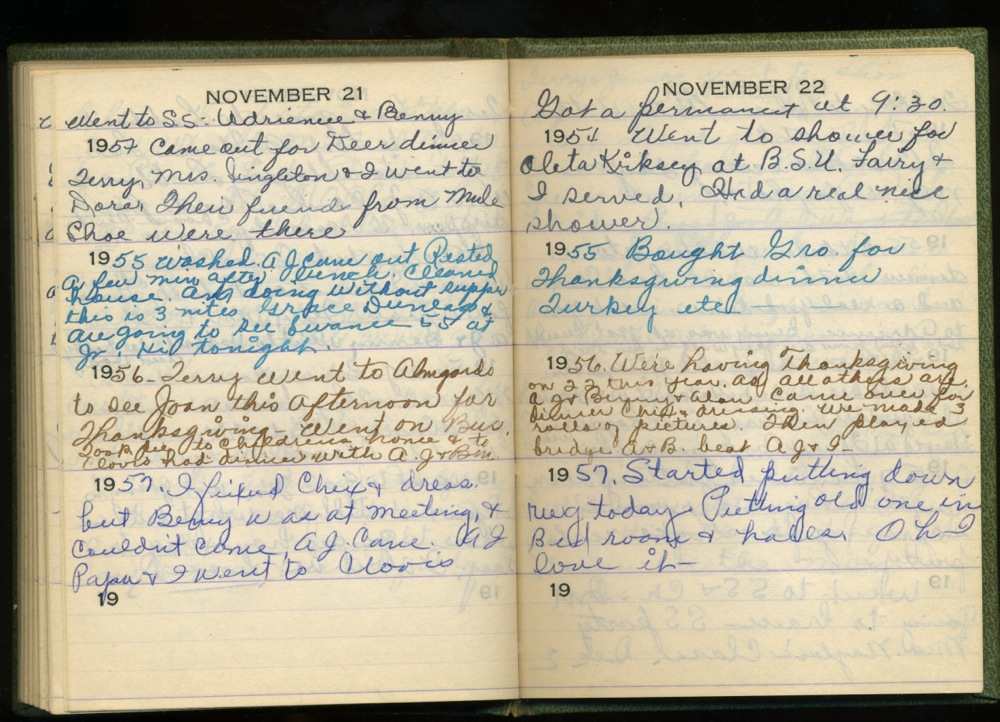 NOVEMBER 21
Went to S.S. - Adrienne & Benny
1954 Came out for Deer dinner
Terry, Mrs. Singleton & I went to
Dora, Their friend from Mule
Shoe were there
1955 washed. A J came out Rested
a few min after lunch. Cleaned
house. Am doing without supper
this is 3 nites. Grace Duncan &
are going to see 55 at
Jr. Hi tonight.
1956 - Terry went to Almgordo
to see Joan this afternoon for
Thanksgiving - Went on Bus.
Took to Childrens home & to
Clovis had dinner with A. J & Ben
1957. I fixed Chix & dress.
but Benny was at meeting, &
Couldn't come, A J. Came. A J
Papa & I went to Clovis
19
NOVEMBER 22
Got a permanent at 9:30.
1954 Went to shower for
Oleta Kirksey at B.S.U. Fairy &
I served, Had a real nice
shower.
1955 Bought Gro. for
Thanksgiving dinner
Turkey etc
1956. We're having Thanksgiving
on 22 this year. as all others are.
A J & Benny & Alan came over for
dinner Chix & dressing. We made 3
rolls of pictures. Then played
bridge A & B. beat A J & I -
1957. Started putting down
rug today. Putting old one in
Bed room & halls. Oh I
love it -
19